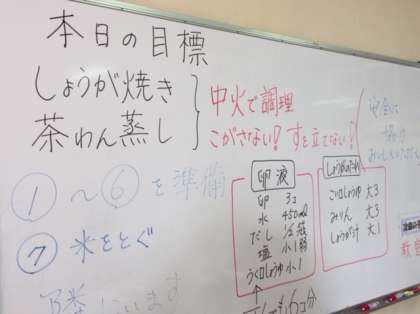 本日の目標
しょうが焼き
茶わん蒸し
中火で調理
こがさない!すを立てない!
安全に
①～⑥を準備
⑦米をとぐ
隣にいます
卵液
卵 3コ
水 450ml
だし
塩 小1弱
うくちしょうゆ 小1
6コ分
こい口しょうゆ 大3
みりん 大3
しょうが汁 大1